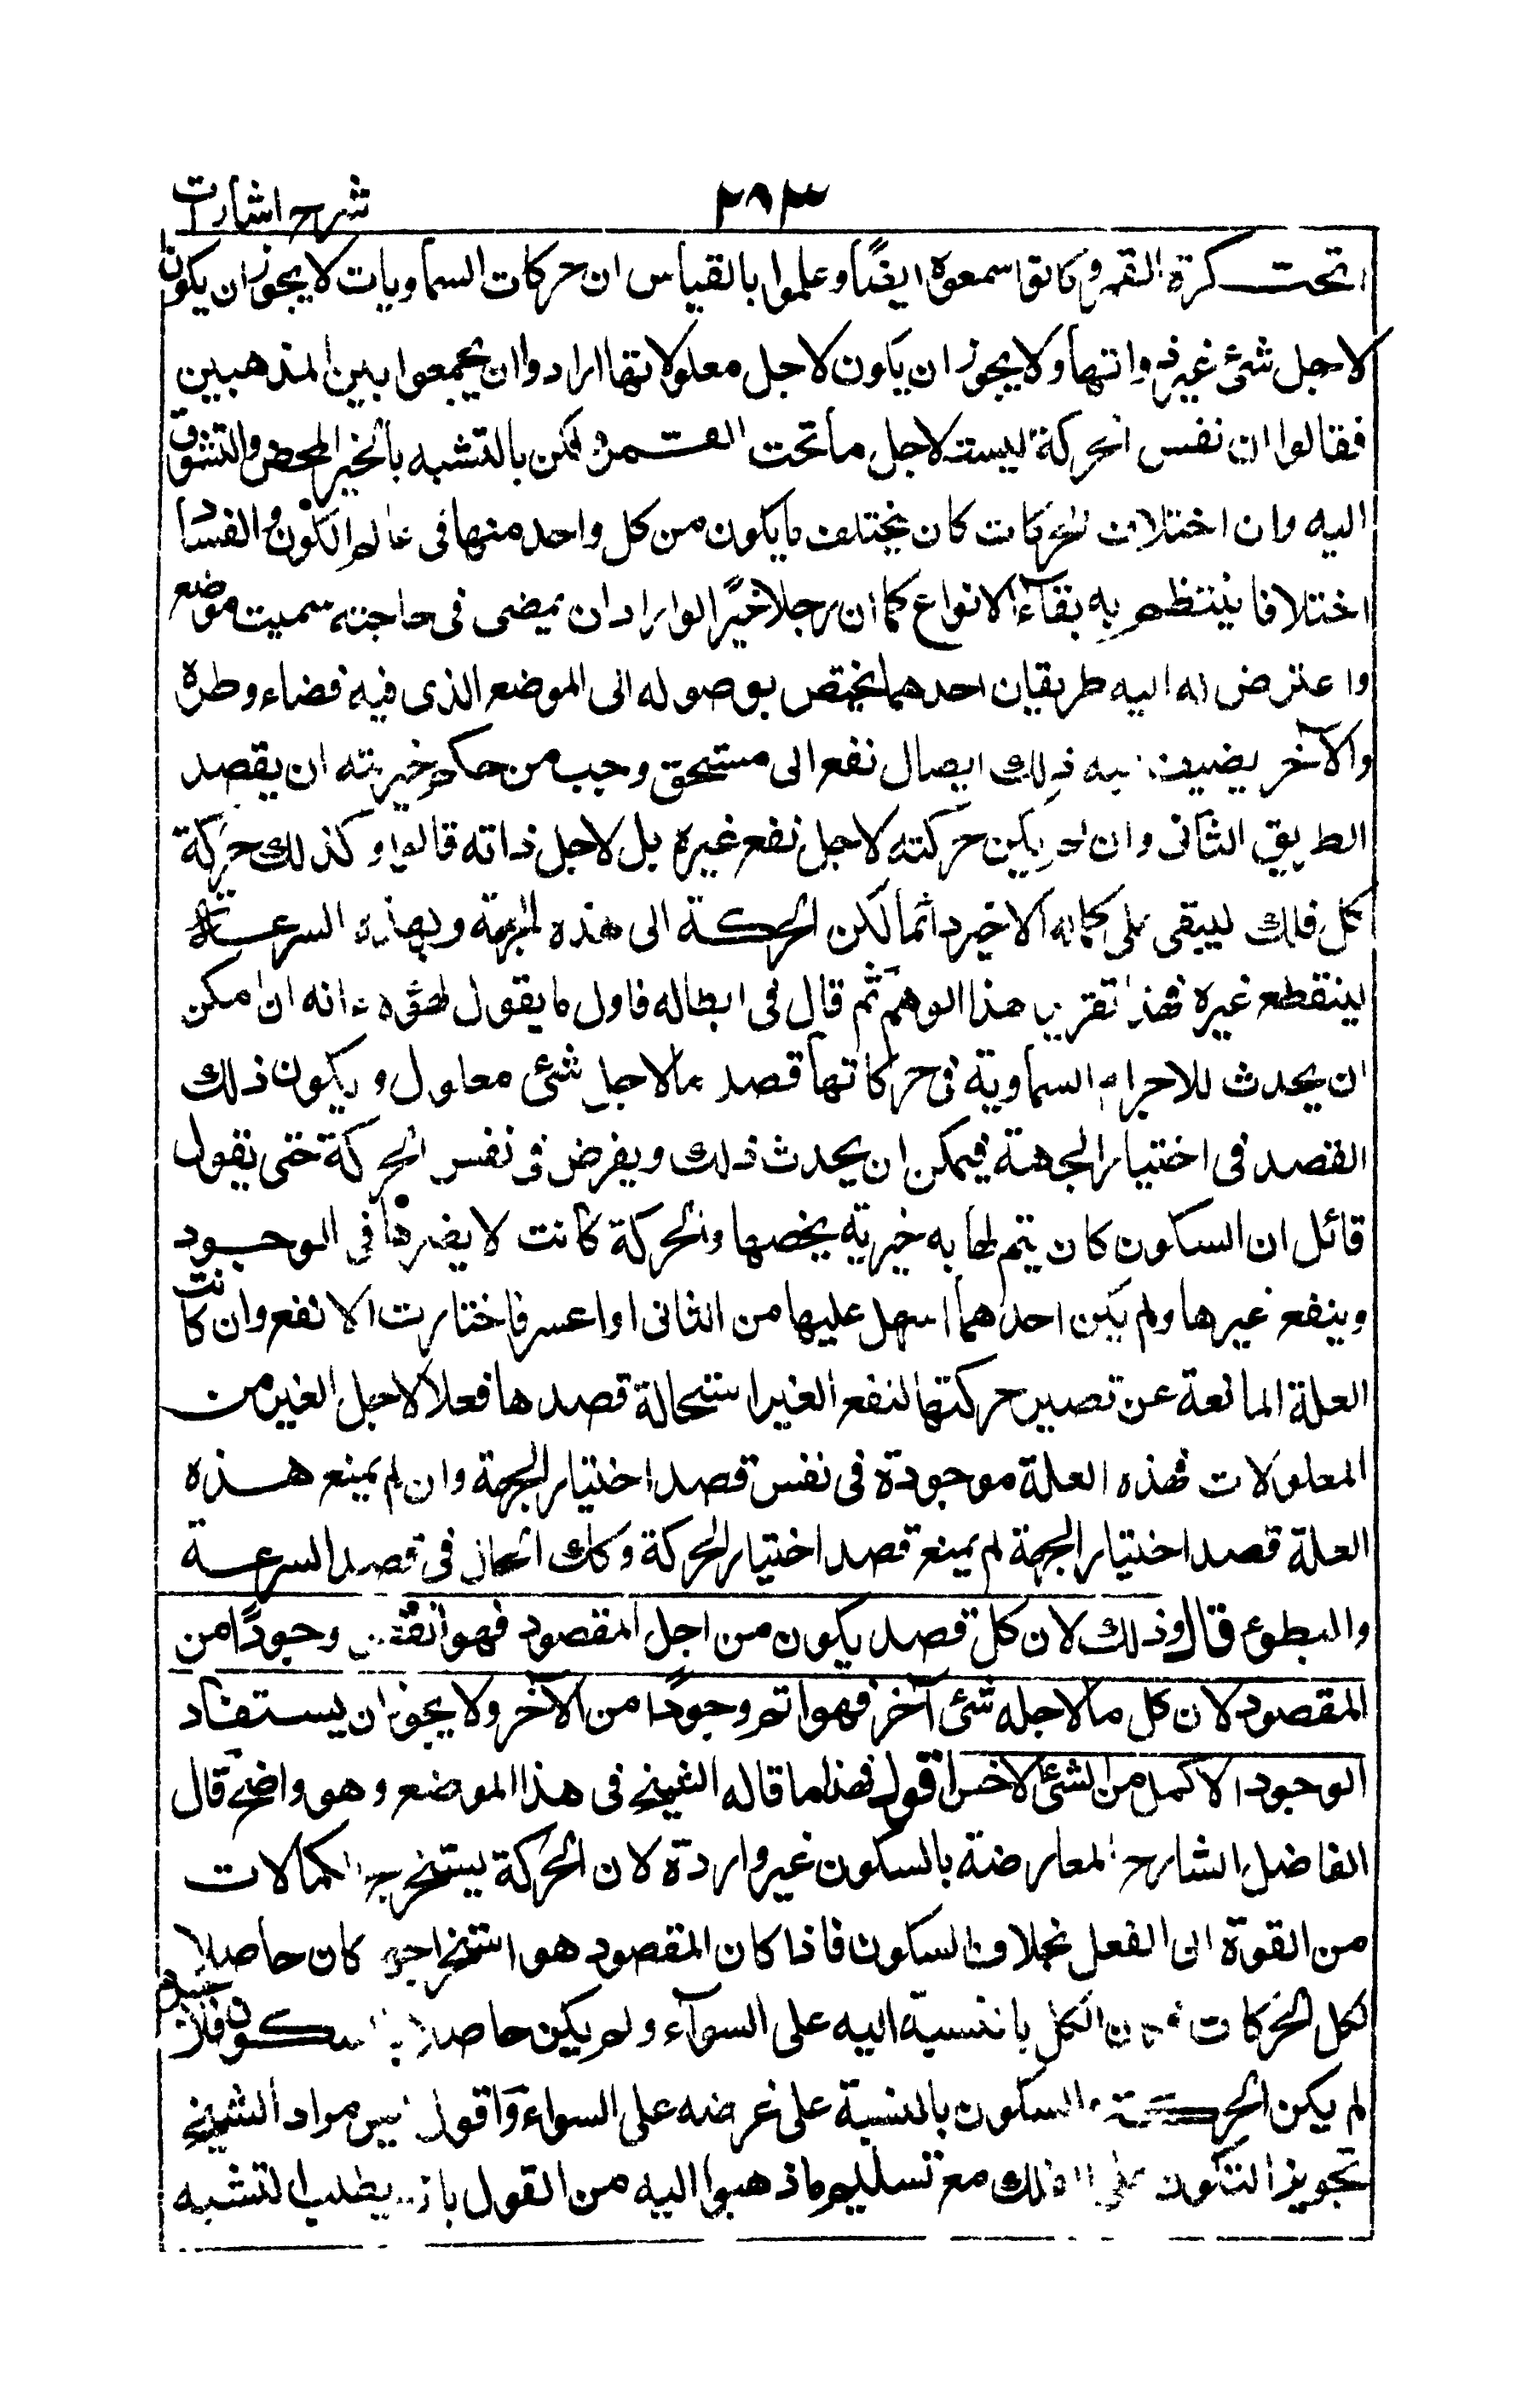 شرح اشارات ٢٩٣
تحت كرة القمر وكانوا سمعوه ايضًا وعلموا بالقياس ان حركات السماويات لا يجوز ان يكون
لاجل شئ غير ذواتها ولا يجوز ان يكون لاجل معلولاتها ارادوا ان يجمعوا بين المذهبين
فقالوا ان نفس الحركة ليست لاجل ما تحت القمر ولكن بالتشبه بالخير المحض والتشوق
اليه وان اختلاف الحركات كان يختلف ما يكون من كل واحد منها فى عالم الكون والفساد
اختلافا ينتظم به بقآء الانواع كما ان رجلا خيًرا لو اراد ان يمضى فى حاجته سميت موضع
واعترض له اليه طريقان احدهما يختص بوصوله الى الموضع الذى فيه قضاء وطره
والآخر يضيف اليه ذلك ايصال نفع الى مستحق وجب من حكم خيريته ان يقصد
الطريق الثانى وان لم يكن حركته لاجل نفع غيره بل لاجل ذاته قالوا وكذلك حركة
كل فلك ليبقى على كماله الاخير دائما لكن الحركة الى هذه الجهة وبهذه السرعة
لينقطع غيره فهذا تقرير هذا الوهم ثم قال فى ابطاله فاول ما يقول لهؤلاء انه ان امكن
ان يحدث للاجرام السماوية فى حركاتها قصد ما لاجل شئ معلول ويكون ذلك
القصد فى اختيار الجهة فيمكن ان يحدث ذلك ويفرض فى نفس الحركة حتى يقول
قائل ان السكون كان يتم لها به خيرية يخصها والحركة كانت لا يضرها فى الوجود
وينفع غيرها ولم يكن احدهما اسهل عليها من الثانى او اعسر فاختارت الانفع وان كانت
العلة المانعة عن تصيير حركتها لنفع الغير استحالة قصدها فعلا لاجل الغير من
المعلولات فهذه العلة موجودة فى نفس قصد اختيار الجهة وان لم يمنع هذه
العلة قصد اختيار الجهة لم يمنع قصد اختيار الحركة وكك الحال فى قصد السرعة
والبطوء قال وذلك لان كل قصد يكون من اجل المقصود فهو انقص وجودًا من
المقصود لان كل ما لاجله شئ آخر فهو اتم وجودًا من الآخر ولا يجوز ان يستفاد
الوجود الاكمل من الشئ الاخس اقول فهذا ما قاله الشيخ فى هذا الموضع وهو واضح قال
الفاضل الشارح المعارضة بالسكون غير واردة لان الحركة يستخرج الكمالات
من القوة الى الفعل بخلاف السكون فاذا كان المقصود هو استخراجه كان حاصلا
لكل الحركات فكان الكل بالنسبة اليه على السوآء ولم يكن حاصلا بالسكون فلا جرم
لم يكن الحركة والسكون بالنسبة على غرضه على السواء واقول ليس مراد الشيخ
تجويز السكون على الفلك مع تسليم ما ذهبوا اليه من القول بانه يطلب التشبه